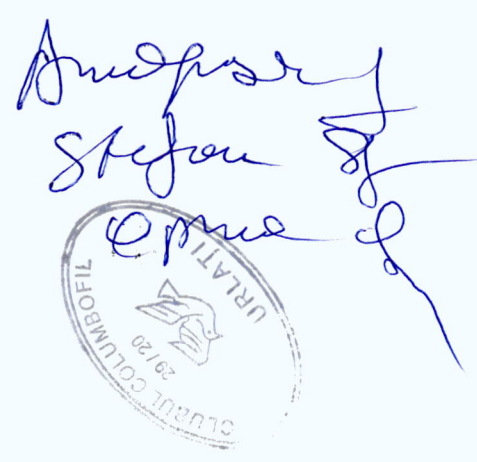 Stefan
Oprea
CLUBUL COLUMBOFIL
URLATI
29/20